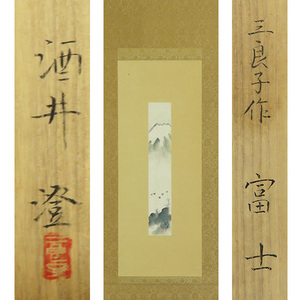 三良子作 富士
酒井 澄